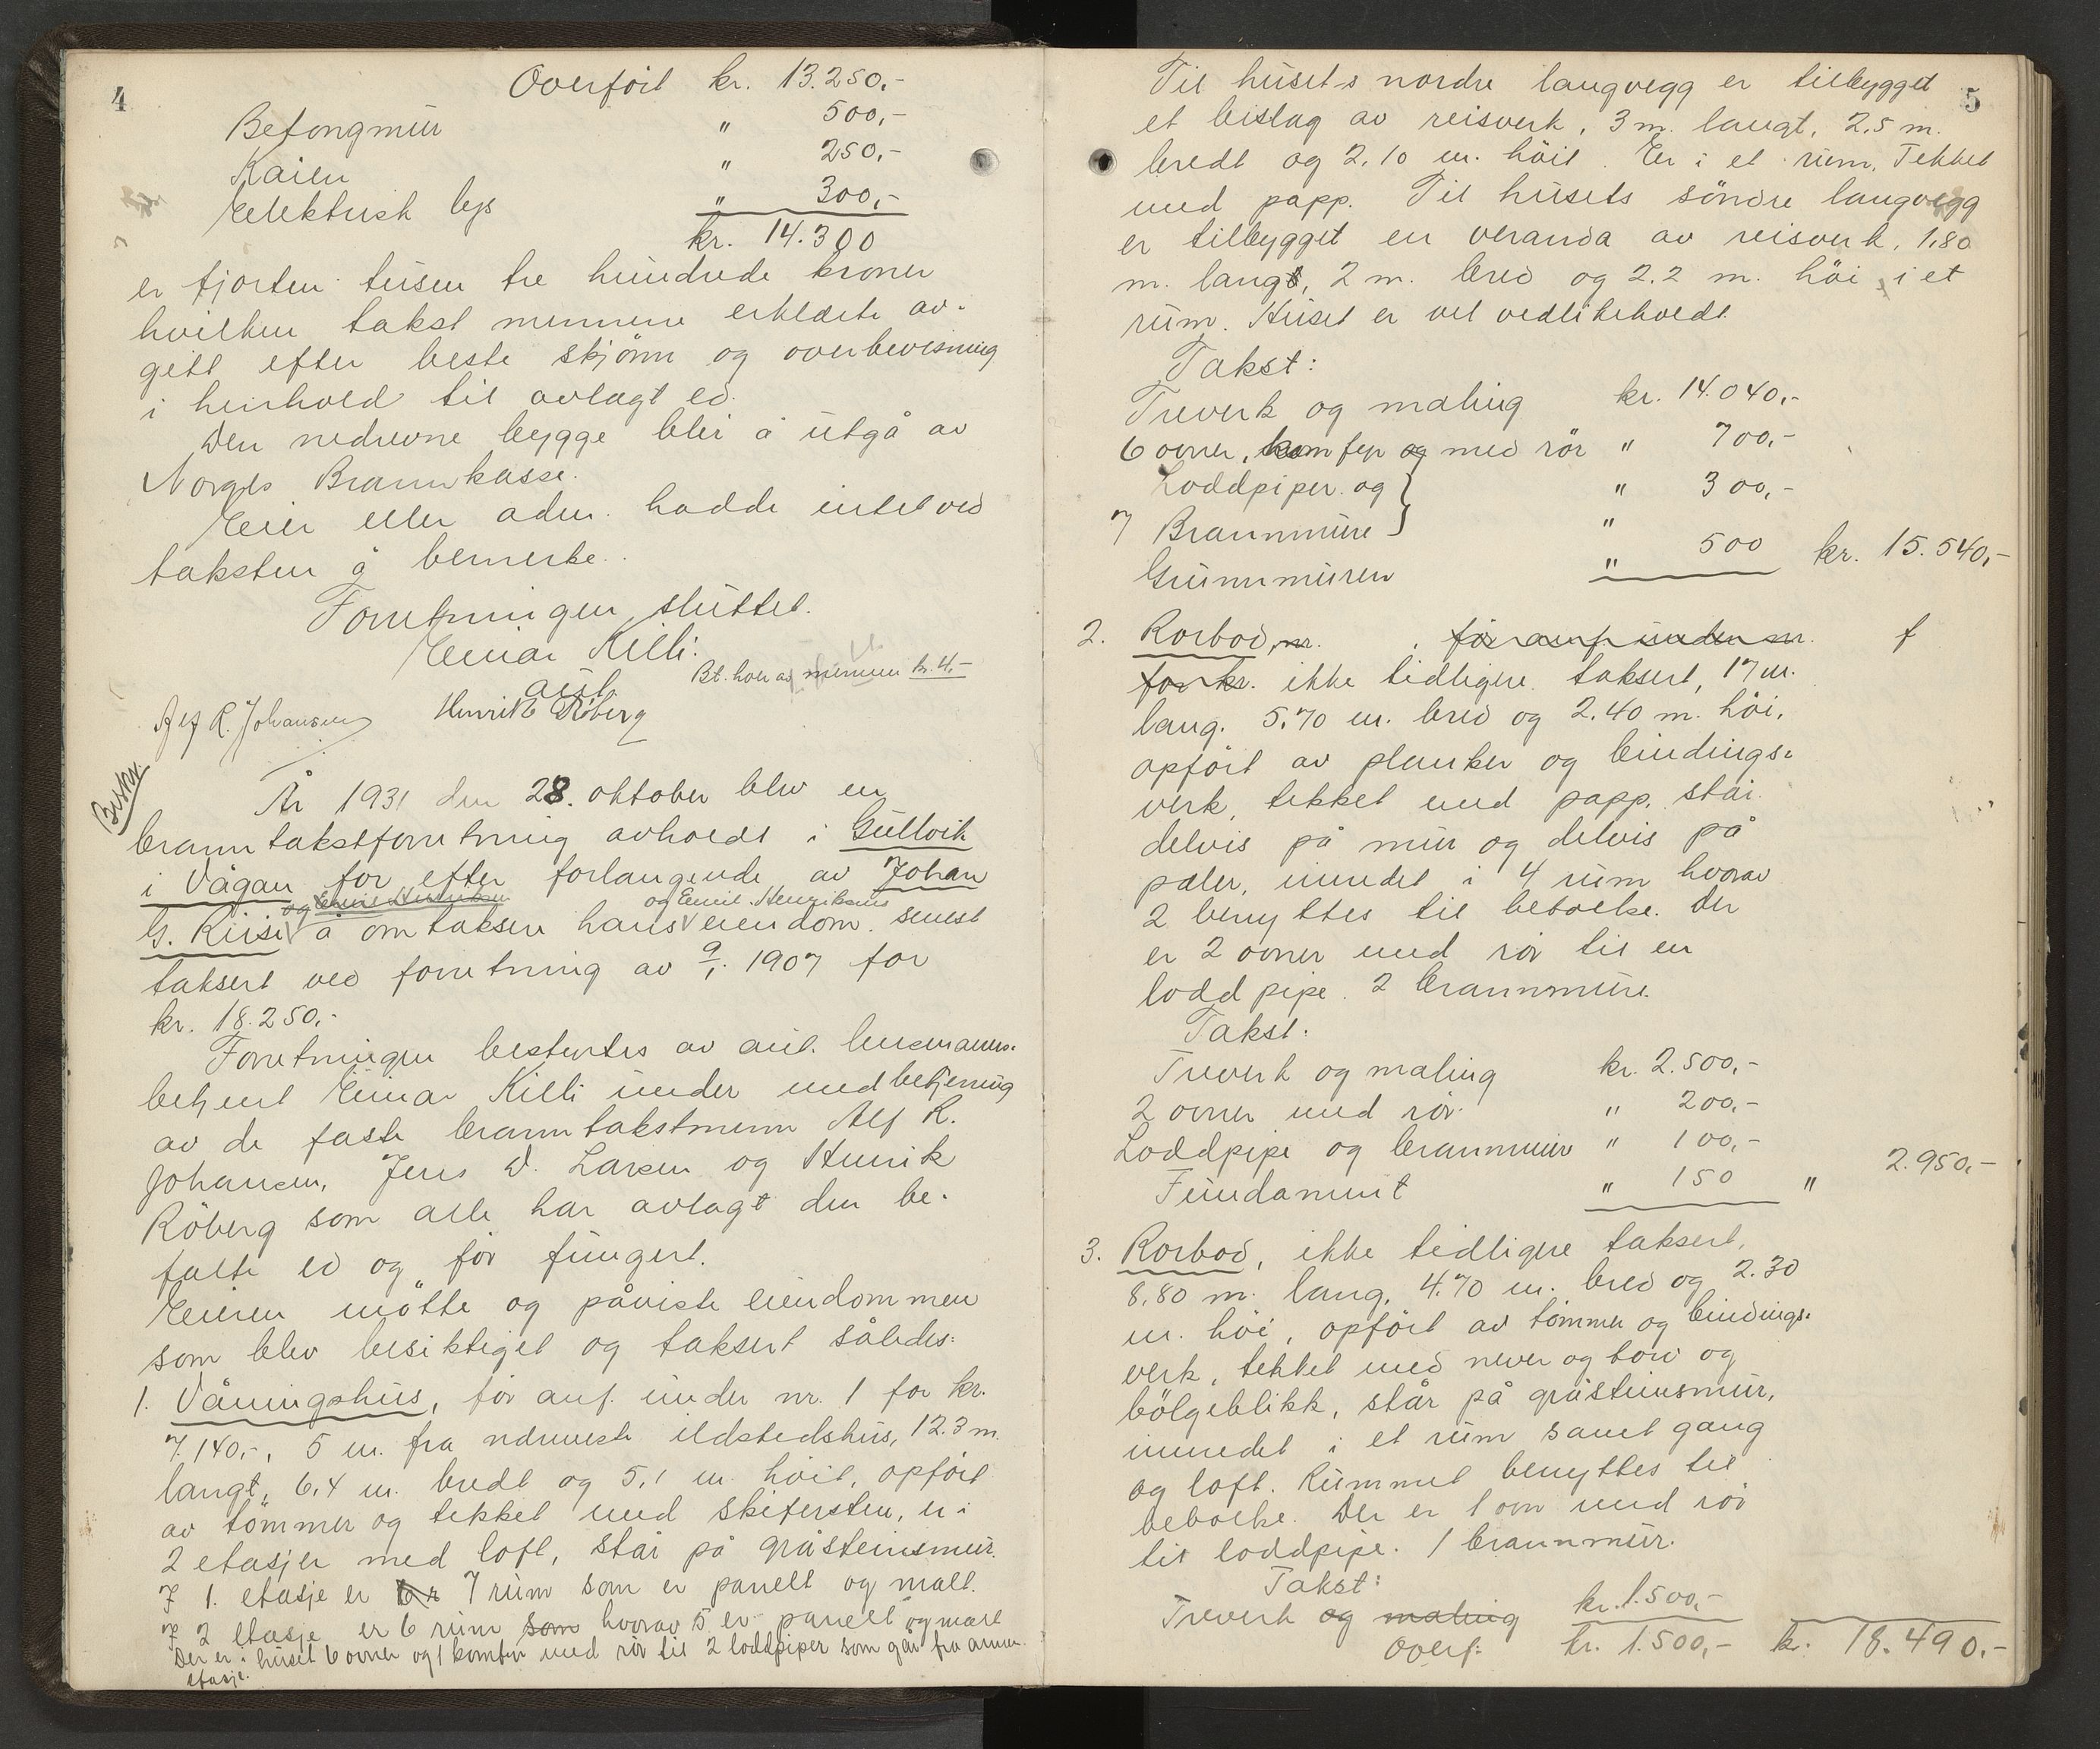 4
Overført kr. 13.250,-
Betongmur " 500,-
Kaien " 250,-
Elektrisk lys " 300,-
kr. 14.300
er fjorten tusen tre hundrede kroner
hvilken takst mennene erklærte av-
gitt efter beste skjønn og overbevisning
i henhold til avlagt ed.
Den nedrevne bygge blir å utgå av
Norges Brannkasse.
Eier eller adm. hadde intet ved
taksten å bemerke.
Forretningen sluttet.
Einar Killi.
aut.
Bet. hver av mennene kr. 4.-
Alf R. Johansen Henrik Röberg
Beskr.
År 1931 den 28. oktober blev en
branntakstforretning avholdt i Gullvik
i Vågan for efter forlangende av Johan
og Emil Henriksen og Emil Henriksens
G. Kiisi å omtaksere hans eiendom senest
taksert ved forretning av 9/1. 1907 for
kr. 18.250,-
Forretningen bestyrtes av aut. lensmanns-
betjent Einar Killi under medbetjening
av de faste branntakstmenn Alf R.
Johansen, Jens D. Larsen og Henrik
Röberg som alle har avlagt den be-
falte ed og før fungert.
Eieren møtte og påviste eiendommen
som blev besiktiget og taksert således:
1. Våningshus, før anf. under nr. 1 for kr.
7.140,-, 5 m. fra nærmeste ildstedshus, 12.3 m.
langt, 6,4 m. bredt og 5,1 m. höit, opført
av tömmer og tekket med skifersten, er i
2 etasjer med loft, står på gråsteinsmur.
I 1. etasje er 7 rum som er panelt og malt.
I 2 etasje er 6 rum som hvorav 5 er panelt og malt
Der er i huset 6 ovner og 1 komfyr med rör til 2 loddpiper som går fra annen
etasje.
5
Til husets nordre langvegg er tilbygget
et bislag av reisverk, 3 m. langt, 2,5 m.
bredt og 2,10 m. höit. Er i et rum. Tekket
med papp. Til husets söndre langvegg
er tilbygget en veranda av reisverk, 1,80
m. lang, 2 m. bred og 2.2 m. höi, i et
rum. Huset er vel vedlikeholdt.
Takst:
Treverk og maling kr. 14.040,-
6 ovner, komfyr og med rör " 700,-
Loddpiper og } " 300,-
7 Brannmure "
Grunnmuren " 500 kr. 15.540,-
2. Rorbod, nr. , før anf. under nr. f
for kr. ikke tidligere taksert, 17 m.
lang. 5,70 m. bred og 2.40 m. höi,
opført av planker og bindings-
verk, tekket med papp, står
delvis på mur og delvis på
pæler, innredet i 4 rum hvorav
2 benyttes til beboelse. Der
er 2 ovner med rör til en
loddpipe. 2 brannmure.
Takst:
Treverk og maling kr. 2.500,-
2 ovner med rör " 200,-
Loddpipe og brannmur " 100,-
Fundament " 150 " 2.950,-
3. Rorbod, ikke tidligere taksert,
8,80 m. lang, 4.70 m. bred og 2.30
m. höi, opført av tömmer og bindings-
verk, tekket med never og torv og
bölgeblikk, står på gråsteinsmur,
innredet i et rum samt gang
og loft. Rummet benyttes til
beboelse. Der er 1 ovn med rör
til loddpipe. 1 brannmur.
Takst:
Treverk og maling kr. 1.500,-
Overf. kr. 1.500,- kr. 18.490,-